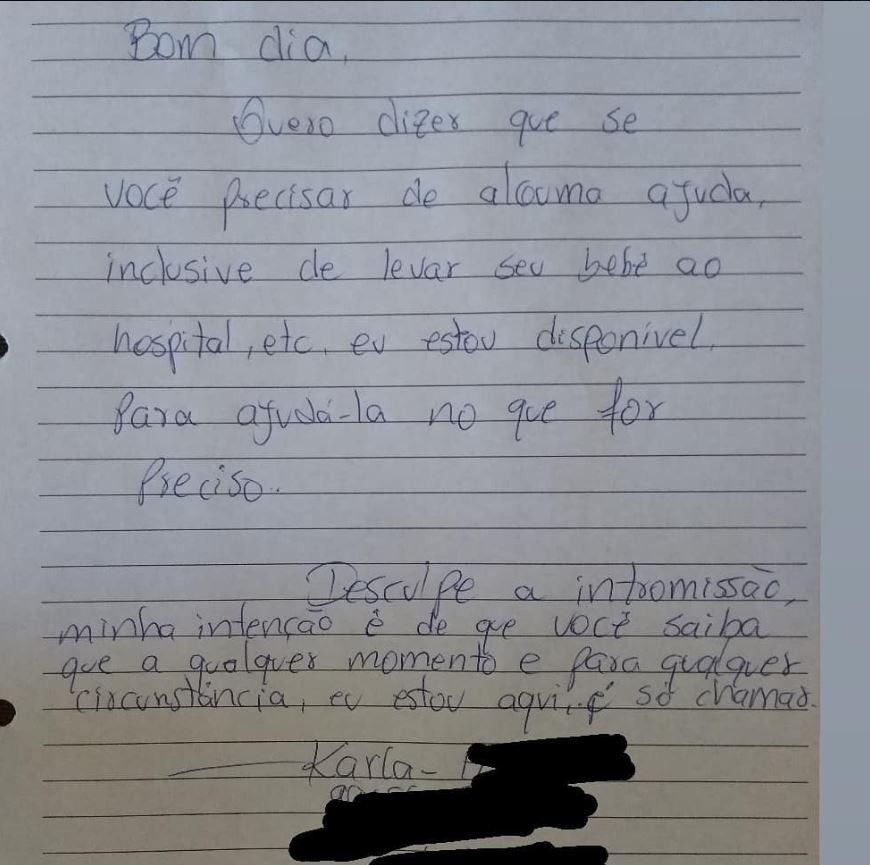 Bom dia,
Quero dizer que se
você precisar de alguma ajuda,
inclusive de levar seu bebê ao
hospital, etc. eu estou disponível
para ajudá-la no que for
preciso.
Desculpe a intromissão,
minha intenção é de que você saiba
que a qualquer momento e para qualquer
circunstância, eu estou aqui, é só chamar.
Karla-